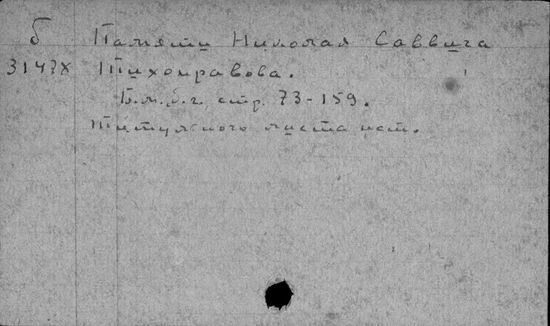 б Памяти Николая Саввича
3147X Тихонравова.
Б.м.б.г. стр. 73-159.
титульного листа нет.